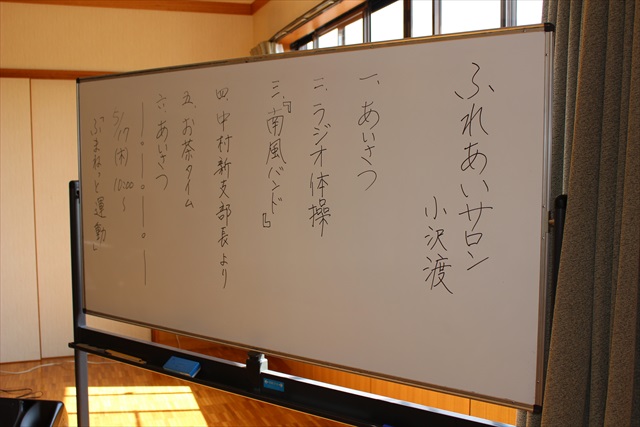 ふれあいサロン
小沢渡
一、あいさつ
二、ラジオ体操
三、『南風バンド』
四、中村新支部長より
五、お茶タイム
六、あいさつ
5/17(木) 10:00~
「ふまねっと運動」